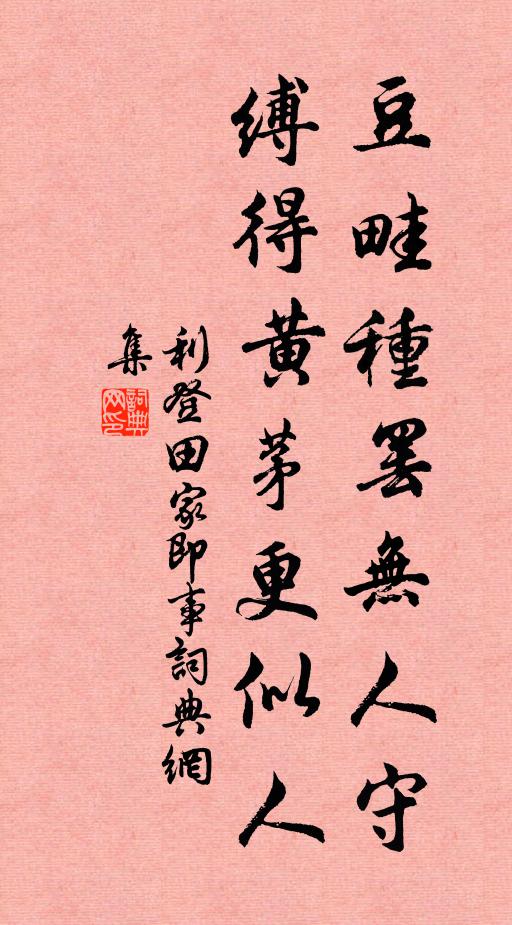 豆畦種罷無人守
縛得黄茅更似人
利登田家即事詞典網
集
詞典
网印